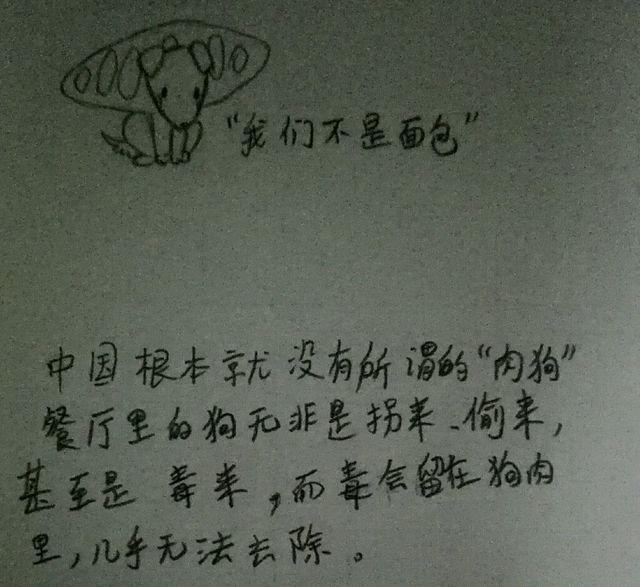 “我们不是面包”
中国根本就没有所谓的“肉狗”
餐厅里的狗无非是拐来、偷来，
甚至是毒来，而毒会留在狗肉
里，几乎无法去除。